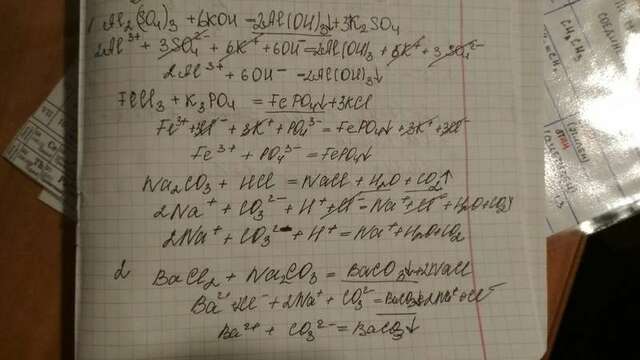 1. Al₂(SO₄)₃ + 6KOH = 2Al(OH)₃↓ + 3K₂SO₄
2Al³⁺ + 3SO₄²⁻ + 6K⁺ + 6OH⁻ = 2Al(OH)₃ + 6K⁺ + 3SO₄²⁻
2Al³⁺ + 6OH⁻ = 2Al(OH)₃↓
FeCl₃ + K₃PO₄ = FePO₄↓ + 3KCl
Fe³⁺ + 3Cl⁻ + 3K⁺ + PO₄³⁻ = FePO₄↓ + 3K⁺ + 3Cl⁻
Fe³⁺ + PO₄³⁻ = FePO₄↓
Na₂CO₃ + HCl = NaCl + H₂O + CO₂↑
2Na⁺ + CO₃²⁻ + H⁺ + Cl⁻ = Na⁺ + Cl⁻ + H₂O + CO₂↑
2Na⁺ + CO₃²⁻ + H⁺ = Na⁺ + H₂O + CO₂
2 BaCl₂ + Na₂CO₃ = BaCO₃↓ + 2NaCl
Ba²⁺ + Cl⁻ + 2Na⁺ + CO₃²⁻ = BaCO₃↓ + 2Na⁺ + Cl⁻
Ba²⁺ + CO₃²⁻ = BaCO₃↓
CH₂CH₃